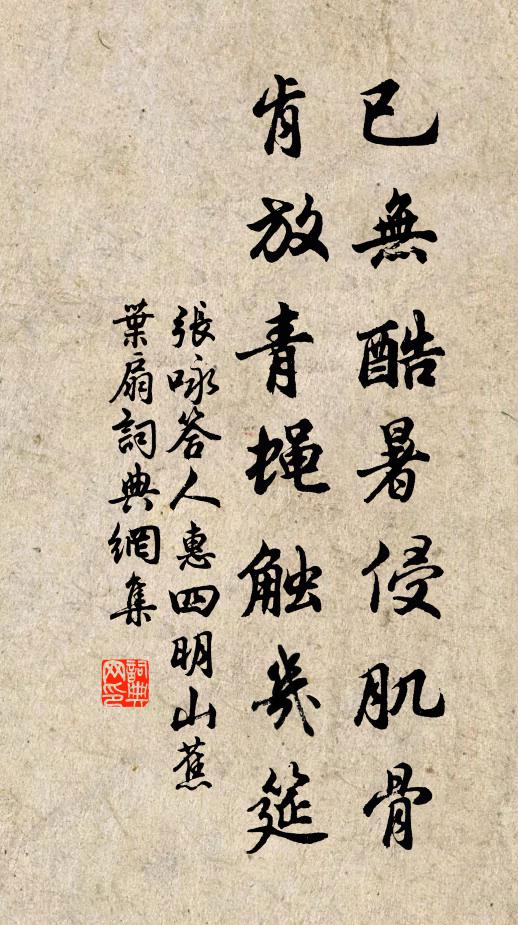 已無酷暑侵肌骨
肯放青蝿触幾筵
張咏答人惠四明山蕉
葉扇詞典網集
詞典
网印